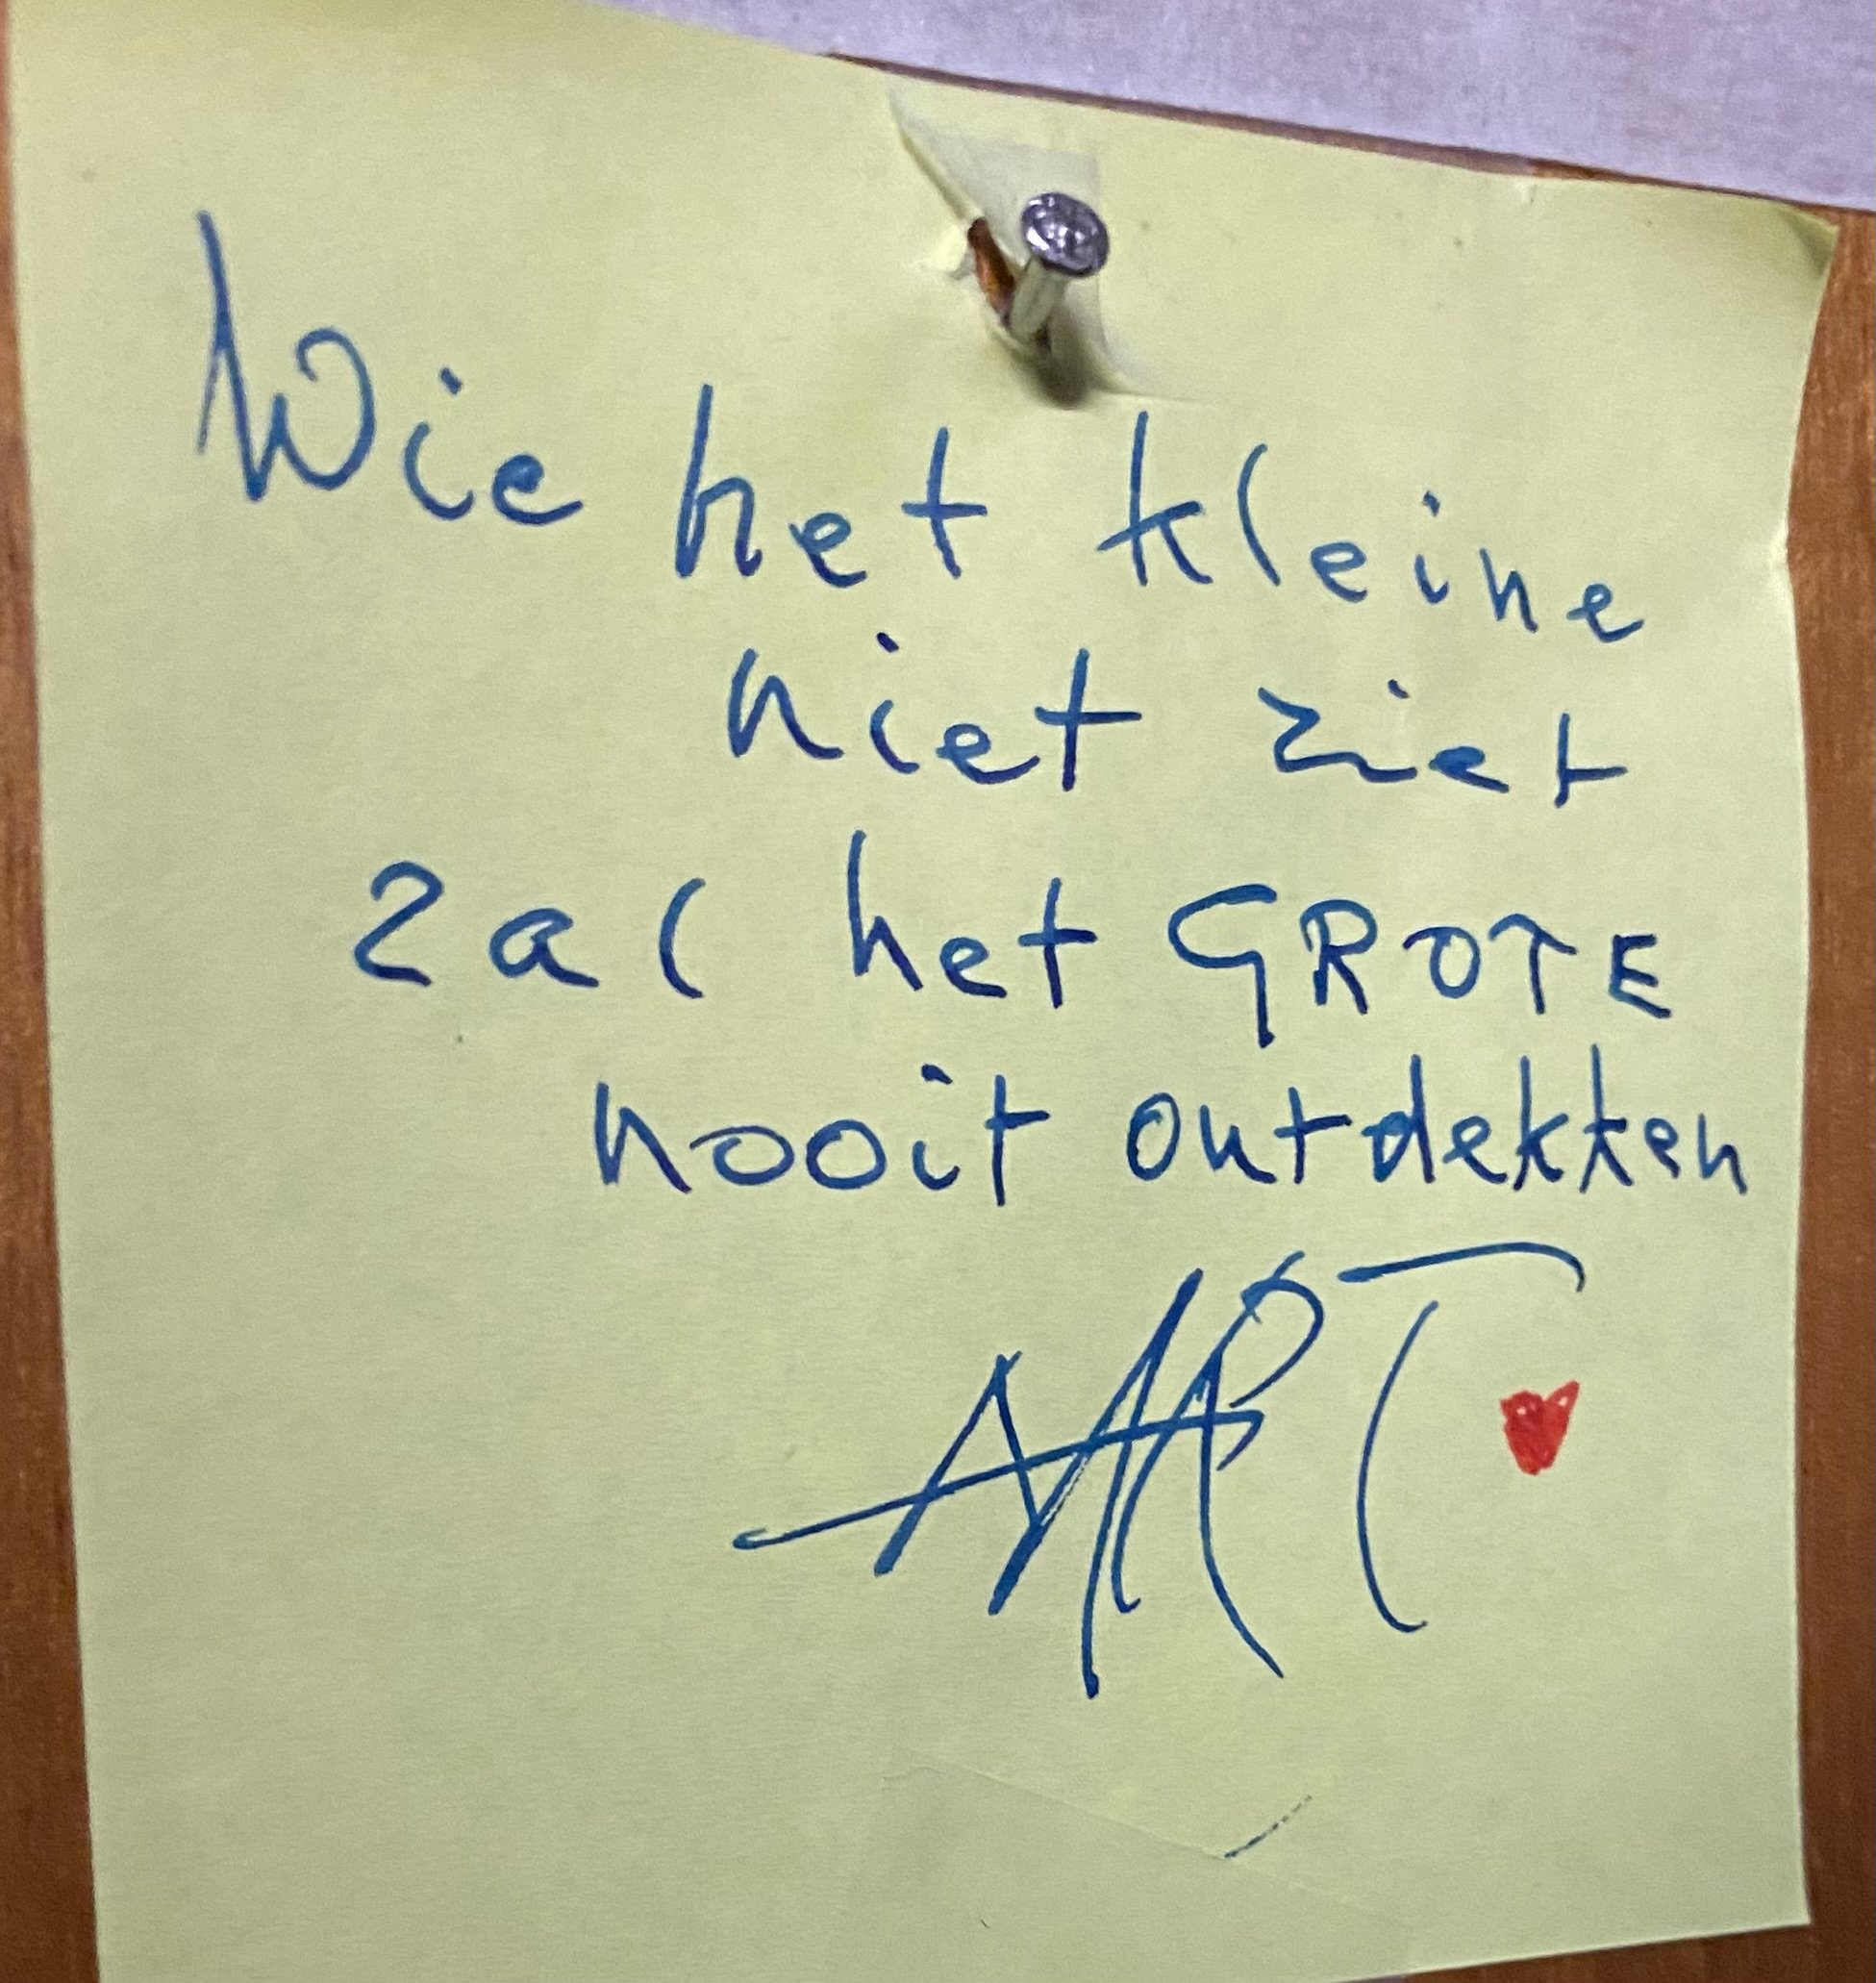 Wie het kleine
niet ziet
zal het GROTE
nooit ontdekken
AART